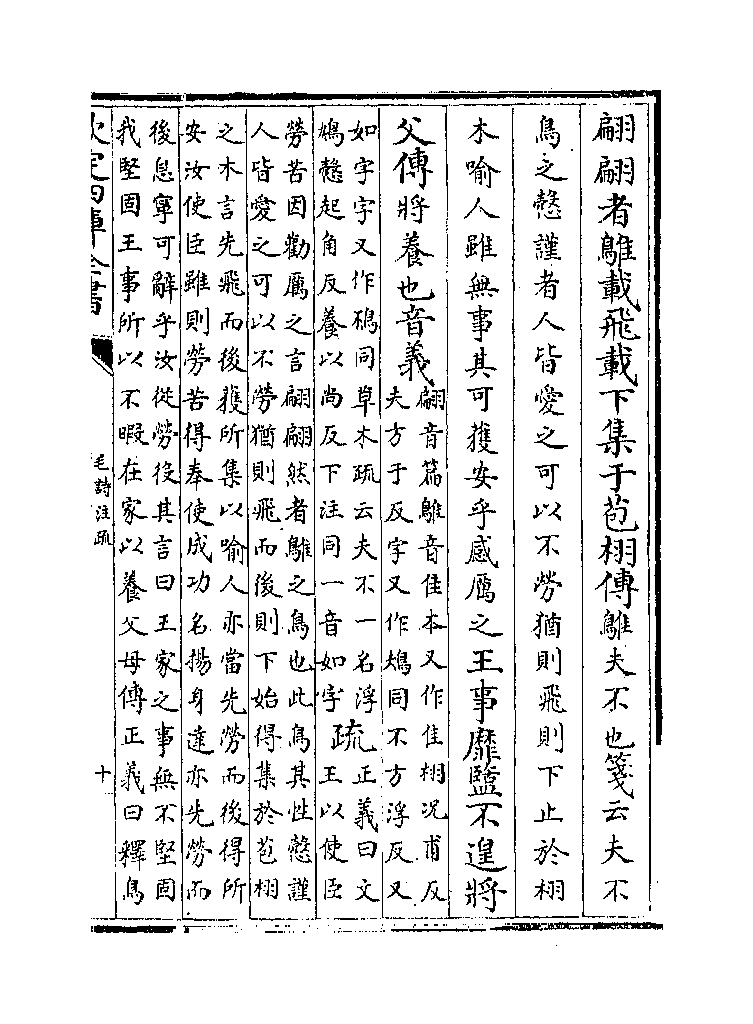 翩翩者鵻載飛載下集于苞栩傳鵻夫不也箋云夫不
鳥之慤謹者人皆愛之可以不勞猶則飛則下止於栩
木喻人雖無事其可獲安乎感厲之王事靡盬不遑將
父傳將養也音義翩音篇鵻音隹本又作隹栩况甫反
夫方于反字又作鳺同不方浮反又
如字字又作鴀同草木疏云夫不一名浮
鳩慤起角反養以尚反下注同一音如字
疏正義曰文
王以使臣
勞苦因勸厲之言翩翩然者鵻之鳥也此鳥其性慤謹
人皆愛之可以不勞猶則飛而後則下始得集於苞栩
之木言先飛而後獲所集以喻人亦當先勞而後得所
安汝使臣雖則勞苦得奉使成功名揚身達亦先勞而
後息寧可辭乎汝從勞役其言曰王家之事無不堅固
我堅固王事所以不暇在家以養父母傳正義曰釋鳥
欽定四庫全書
毛詩注疏
十